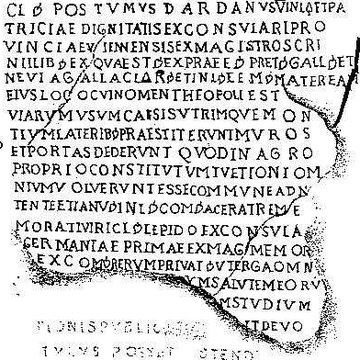 CLƟ POSTVMVSDARDANVSVINLƟETPA
TRICIAEDIGNITATISEXCONSVLARIPRO
VINCIAEVIENNENSISEXMAGISTROSCRI
NIILIBƟEXQVAESTƟEXPRAEFƟPRETƟGALLƟET
NEVIAGALLACLARƟETINLƟFEMƟMATERFAM
EIVSLOCOCVINOMENTHEOPOLIEST
VIARVMVSVMCAESISVTRIMQVEMON
TIVMLATERIBƟPRAESTITERVNTMVROS
ETPORTASDEDERVNTQVODINAGRO
PROPRIOCONSTITVTVMTVETIONIOM
NIVMVOLVERVNTESSECOMMVNEADN
TENTEETIAMVƟINLƟCOMƟACFRATREME
MORATIVIRICLƟLEPIDOEXCONSVLA
GERMANIAEPRIMAEEXMAGƟMEMOR
EXCOMƟRERVMPRIVATƟVTERGAOMN
VMSALVTEMEORV
MSTVDIVM
ETDEVO
TIONISPVBLIC
POSSET STEND